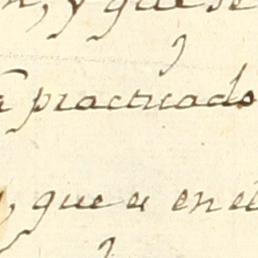 , y que se
practicado
, que a en el